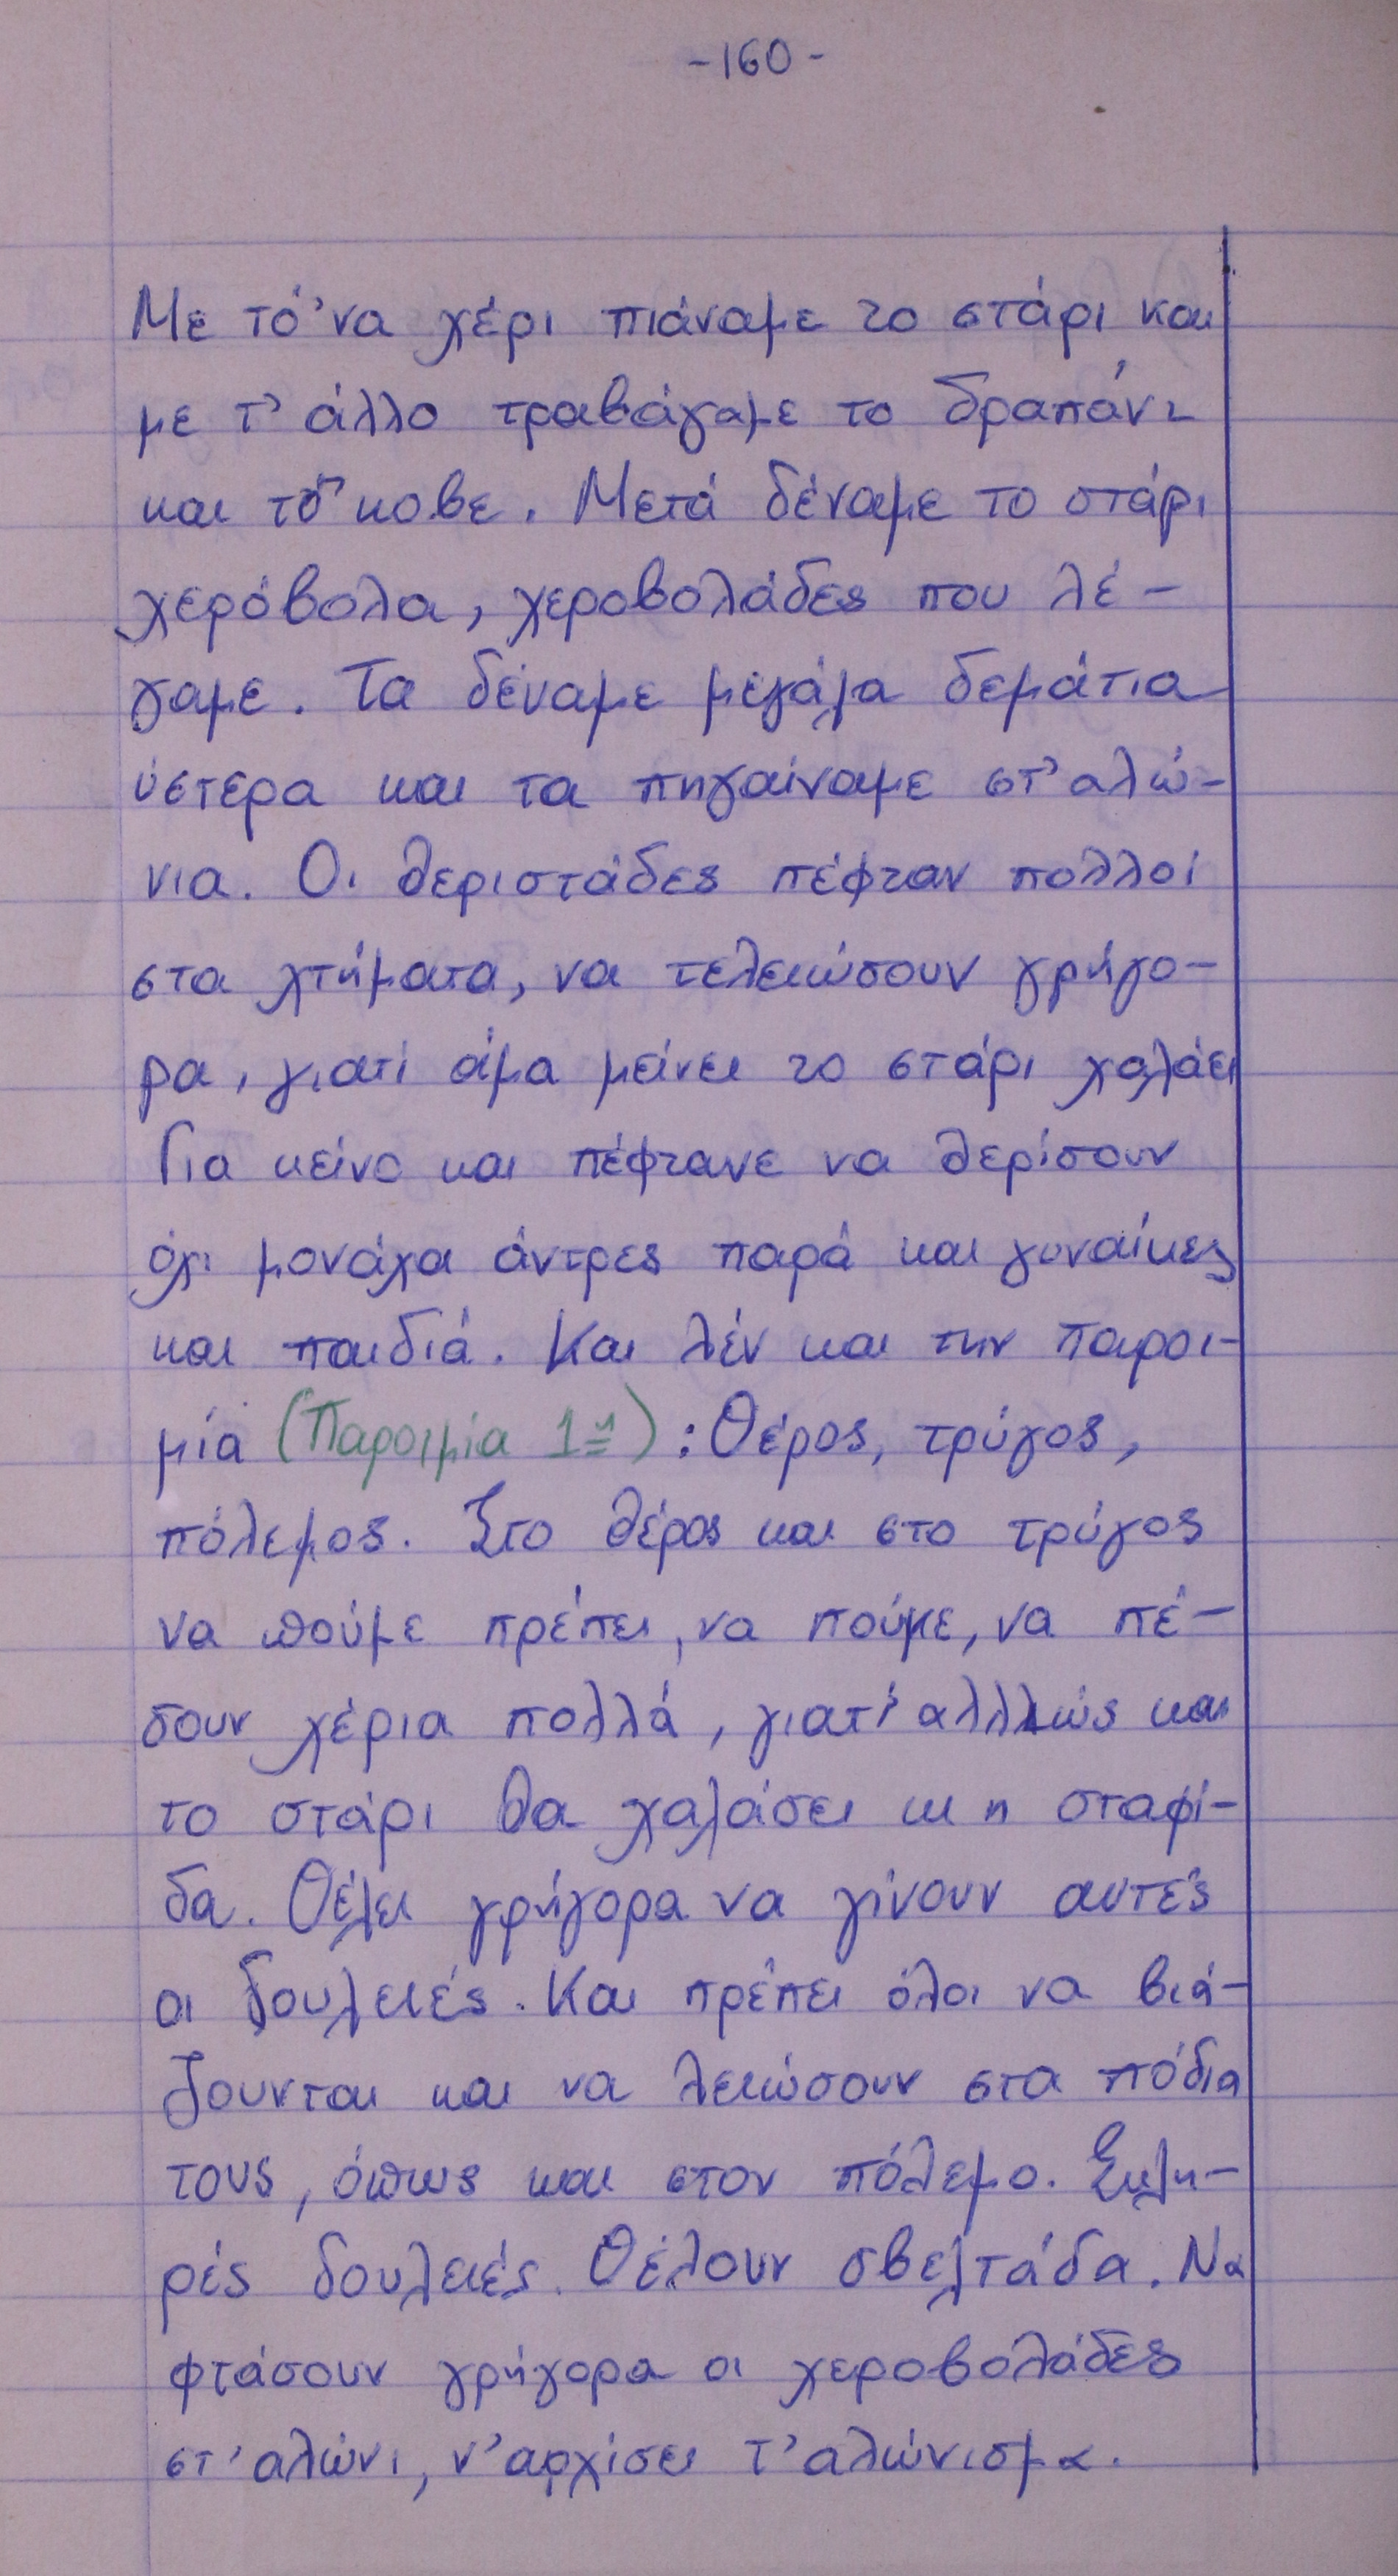 -160-
Με τό'να χέρι πιάναμε το στάρι και
με τ' άλλο τραβάγαμε το δραπάνι
και τό'κοβε. Μετά δέναμε το στάρι
χερόβολα, χεροβολάδες που λέ-
γαμε. Τα δέναμε μεγάλα δεμάτια
ύστερα και τα πηγαίναμε στ'αλώ-
νια. Οι θεριστάδες πέφταν πολλοί
στα χτήματα, να τελειώσουν γρήγο-
ρα, γιατί άμα μείνει το στάρι χαλάει
Για κείνο και πέφτανε να θερίσουν
όχι μονάχα άντρες παρά και γυναίκες
και παιδιά. Και λέν και την παροι-
μία (Παροιμία 1η): Θέρος, τρύγος,
πόλεμος. Στο θέρος και στο τρύγος
να πούμε πρέπει, να πούμε, να πέ-
σουν χέρια πολλά, γιατί αλλλιώς και
το στάρι θα χαλάσει κι η σταφί-
δα. Θέλει γρήγορα να γίνουν αυτές
οι δουλειές. Και πρέπει όλοι να βιά-
ζουνται και να λειώσουν στα πόδια
τους, όπως και στον πόλεμο. Σκλη-
ρές δουλειές. Θέλουν σβελτάδα. Να
φτάσουν γρήγορα οι χεροβολάδες
στ'αλώνι, ν'αρχίσει τ'αλώνισμα.